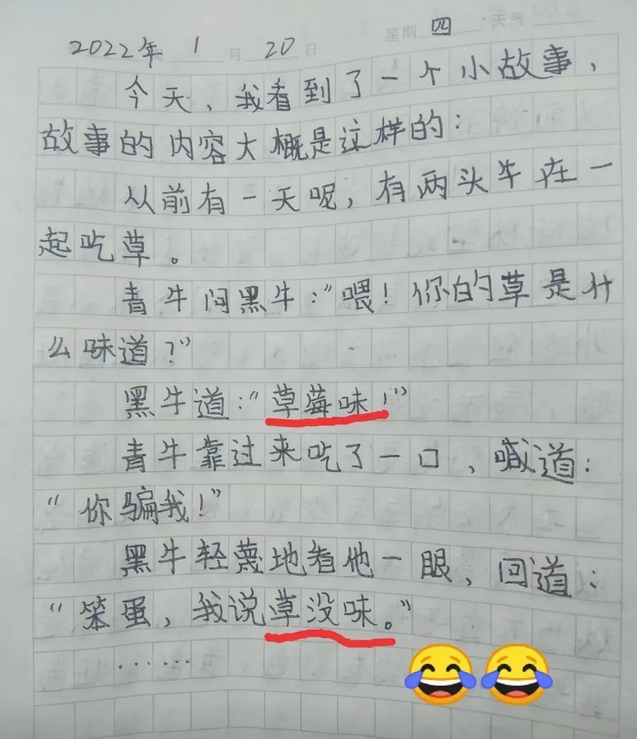 2022年 1月 20日 星期 四 天气
今天，我看到了一个小故事，
故事的内容大概是这样的：
从前有一天呢，有两头牛在一
起吃草。
青牛问黑牛：“喂！你的草是什
么味道？”
黑牛道：“草莓味！”
青牛靠过来吃了一口，喊道：
“你骗我！”
黑牛轻蔑地看他一眼，回道：
“笨蛋，我说草没味。”
……